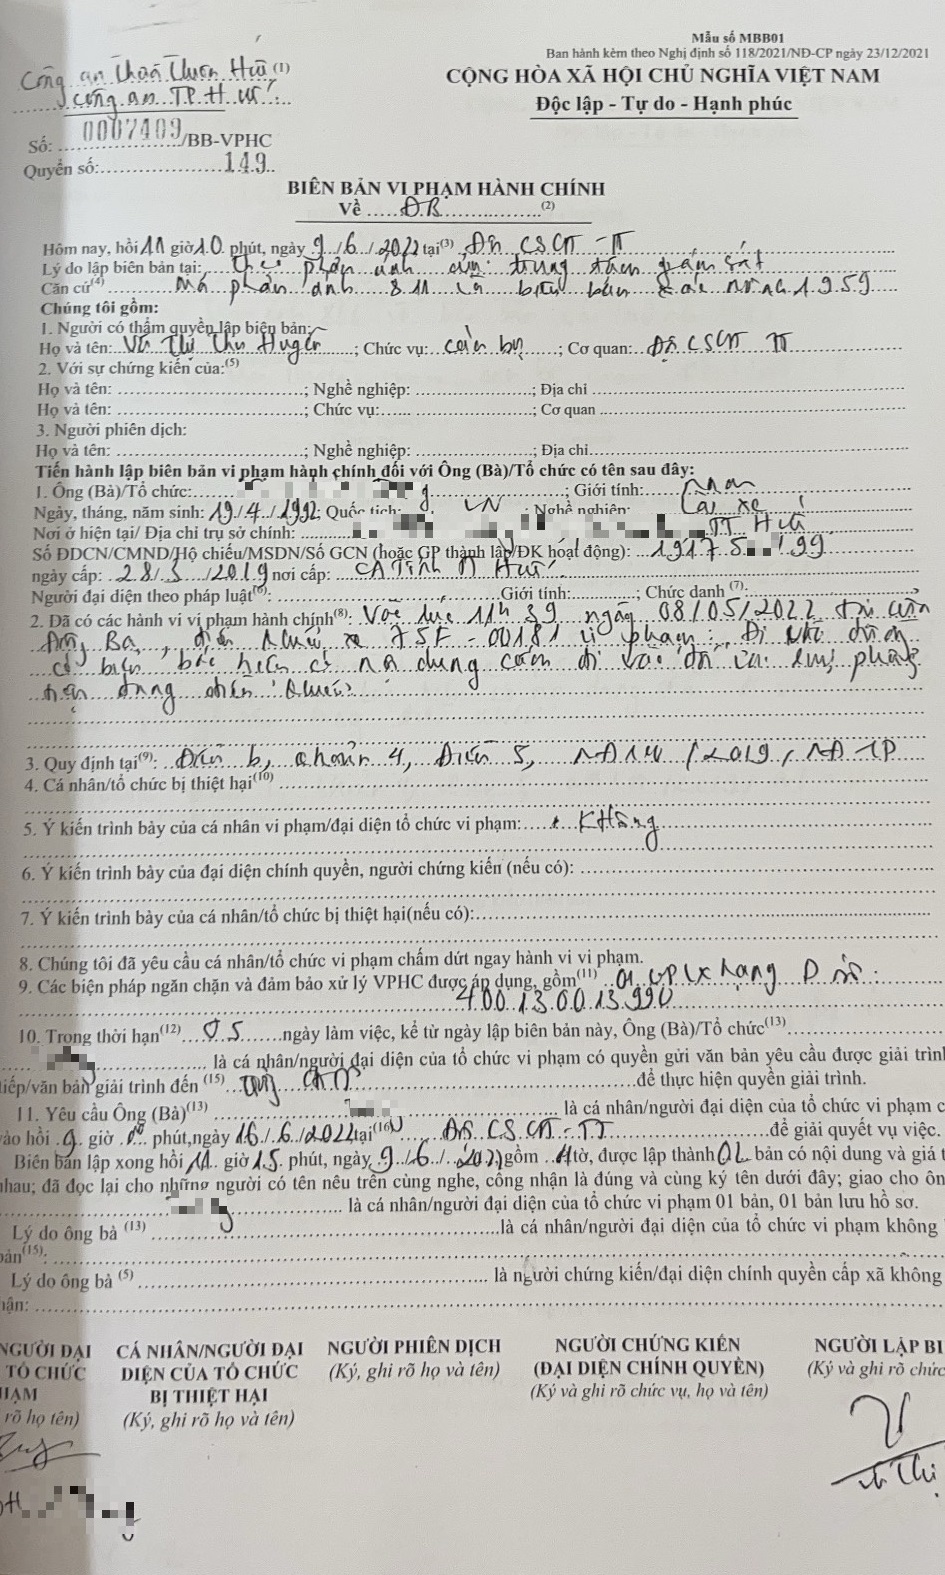 Mẫu số MBB01
Ban hành kèm theo Nghị định số 118/2021/NĐ-CP ngày 23/12/2021
Công an Thừa Thiên Huế (1)
công an TP. Huế
CỘNG HÒA XÃ HỘI CHỦ NGHĨA VIỆT NAM
Độc lập - Tự do - Hạnh phúc
Số: 0007409/BB-VPHC
Quyển số: 149
BIÊN BẢN VI PHẠM HÀNH CHÍNH
Về ĐB (2)
Hôm nay, hồi 11 giờ 10 phút, ngày 9/6/2022 tại(3) Đội CSGT - TT
Lý do lập biên bản tại: theo phản ánh của trung tâm giám sát
Căn cứ(4) Mã phản ánh 8.11 và biên bản xác minh 1959
Chúng tôi gồm:
1. Người có thẩm quyền lập biên bản:
Họ và tên: Võ Thị Thu Huyền; Chức vụ: cán bộ; Cơ quan: Đội CSGT TT
2. Với sự chứng kiến của:(5)
Họ và tên: ; Nghề nghiệp: ; Địa chỉ
Họ và tên: ; Chức vụ: ; Cơ quan
3. Người phiên dịch:
Họ và tên: ; Nghề nghiệp: ; Địa chỉ
Tiến hành lập biên bản vi phạm hành chính đối với Ông (Bà)/Tổ chức có tên sau đây:
1. Ông (Bà)/Tổ chức: ; Giới tính: Nam
Ngày, tháng, năm sinh: 19/4/1992; Quốc tịch: VN; Nghề nghiệp: Lái xe
Nơi ở hiện tại/ Địa chỉ trụ sở chính: TT Huế
Số ĐDCN/CMND/Hộ chiếu/MSDN/Số GCN (hoặc GP thành lập/ĐK hoạt động): 19175 199
ngày cấp: 28/3/2019 nơi cấp: CA Tỉnh TT Huế
Người đại diện theo pháp luật(6): Giới tính: ; Chức danh (7):
2. Đã có các hành vi vi phạm hành chính(8): Vào lúc 11h39 ngày 08/05/2022 tại cầu
Ba, điều khiển xe 75F-00181 vi phạm: Đi vào đường
có biển báo hiệu có nội dung cấm đi vào đối với loại phương
tiện đang điều khiển
3. Quy định tại(9): Điểm b, khoản 4, Điều 5, NĐ100/2019/NĐ-CP
4. Cá nhân/tổ chức bị thiệt hại(10)
5. Ý kiến trình bày của cá nhân vi phạm/đại diện tổ chức vi phạm: Không
6. Ý kiến trình bày của đại diện chính quyền, người chứng kiến (nếu có):
7. Ý kiến trình bày của cá nhân/tổ chức bị thiệt hại(nếu có):
8. Chúng tôi đã yêu cầu cá nhân/tổ chức vi phạm chấm dứt ngay hành vi vi phạm.
9. Các biện pháp ngăn chặn và đảm bảo xử lý VPHC được áp dụng, gồm(11) 01 GPLX hạng D số:
400130013990
10. Trong thời hạn(12) 05 ngày làm việc, kể từ ngày lập biên bản này, Ông (Bà)/Tổ chức(13)
là cá nhân/người đại diện của tổ chức vi phạm có quyền gửi văn bản yêu cầu được giải trình
tiếp/văn bản giải trình đến (15) để thực hiện quyền giải trình.
11. Yêu cầu Ông (Bà)(13) là cá nhân/người đại diện của tổ chức vi phạm c
vào hồi 9 giờ 00 phút, ngày 16/6/2022 tại(16) Đội CSGT-TT để giải quyết vụ việc.
Biên bản lập xong hồi 11 giờ 15 phút, ngày 9/6/2022 gồm 1 tờ, được lập thành 02 bản có nội dung và giá t
nhau; đã đọc lại cho những người có tên nêu trên cùng nghe, công nhận là đúng và cùng ký tên dưới đây; giao cho ôn
là cá nhân/người đại diện của tổ chức vi phạm 01 bản, 01 bản lưu hồ sơ.
Lý do ông bà (13) là cá nhân/người đại diện của tổ chức vi phạm không
bản(15):
Lý do ông bà (5) là người chứng kiến/đại diện chính quyền cấp xã không
nhận:
NGƯỜI ĐẠI
TỔ CHỨC
HẠM
rõ họ tên)
CÁ NHÂN/NGƯỜI ĐẠI
DIỆN CỦA TỔ CHỨC
BỊ THIỆT HẠI
(Ký, ghi rõ họ và tên)
NGƯỜI PHIÊN DỊCH
(Ký, ghi rõ họ và tên)
NGƯỜI CHỨNG KIẾN
(ĐẠI DIỆN CHÍNH QUYỀN)
(Ký và ghi rõ chức vụ, họ và tên)
NGƯỜI LẬP BI
(Ký và ghi rõ chức